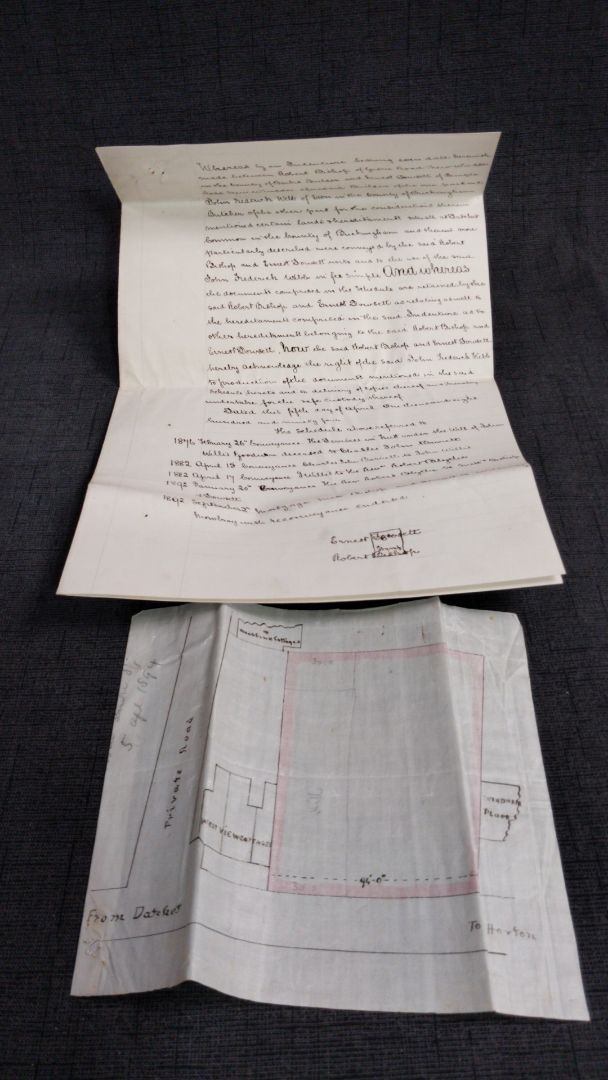 Whereas by an Indenture bearing even date herewith
made between Robert Bishop of Road
in the County of Berks Builder and Ernest Dowsett of
Builder of the one part and
John Frederick Webb of Eton in the County of Buckingham
Butcher of the other part for the consideration therein
mentioned certain lands & hereditaments situate at Datchet
Common in the County of Buckingham and therein more
particularly described were conveyed by the said Robert
Bishop and Ernest Dowsett unto and to the use of the said
John Frederick Webb in fee simple And whereas
the documents comprised in the Schedule are retained by the
said Robert Bishop and Ernest Dowsett as relating as well to
the hereditaments comprised in the said Indenture as to
other hereditaments belonging to the said Robert Bishop and
Ernest Dowsett. Now the said Robert Bishop and Ernest Dowsett
hereby acknowledge the right of the said John Frederick Webb
to production of the documents mentioned in the said
Schedule hereto and to delivery of copies thereof and hereby
undertake for the safe custody thereof
Dated this fifth day of April One thousand eight
hundred and ninety four
The Schedule above referred to
1876 February 26th Conveyance The Devisees in Trust under the Will of John
Willis Goodwin deceased to Charles John
1882 April 15 Conveyance Charles John to John Willis
1882 April 17 Conveyance J Willis to the Revd Robert
1892 January 20th Conveyance The Revd Robert to
& Dowsett
1892 September Mortgage
with reconveyance endorsed
Ernest Dowsett
Robert Bishop
Cottages
5 Apl 1894
Private Road
VIEW COTTAGES
94'-0"
From Datchet
To Horton